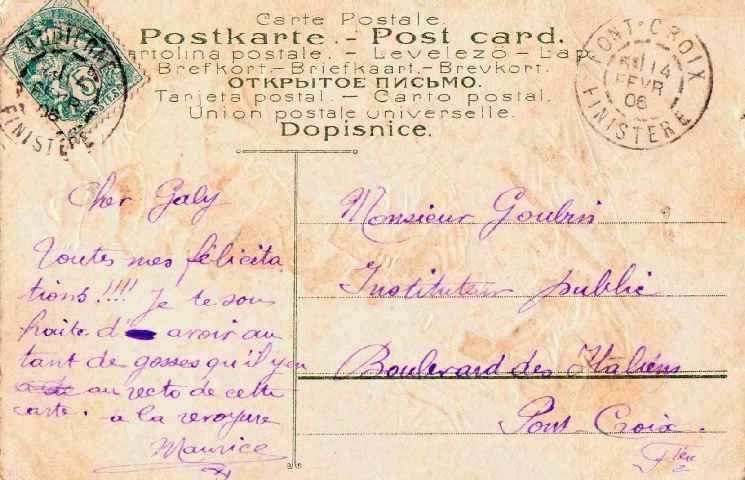 Carte Postale.
Postkarte. - Post card.
Cartolina postale. - Levelező - Lap.
Brefkort. - Briefkaart. - Brevkort.
ОТКРЫТОЕ ПИСЬМО.
Tarjeta postal. - Carto postal.
Union postale universelle.
Dopisnice.
AUDIERNE
FEVR
06
FINISTERE
5
PONT-CROIX
14
FEVR
06
FINISTERE
Cher Galy
Toutes mes félicita
tions!!!! Je te sou
haite d' avoir au
tant de gosses qu'il y en
a de au recto de cette
carte. à la revoyure
Maurice
Monsieur
Instituteur public
Boulevard des Italiens
Pont Croix.